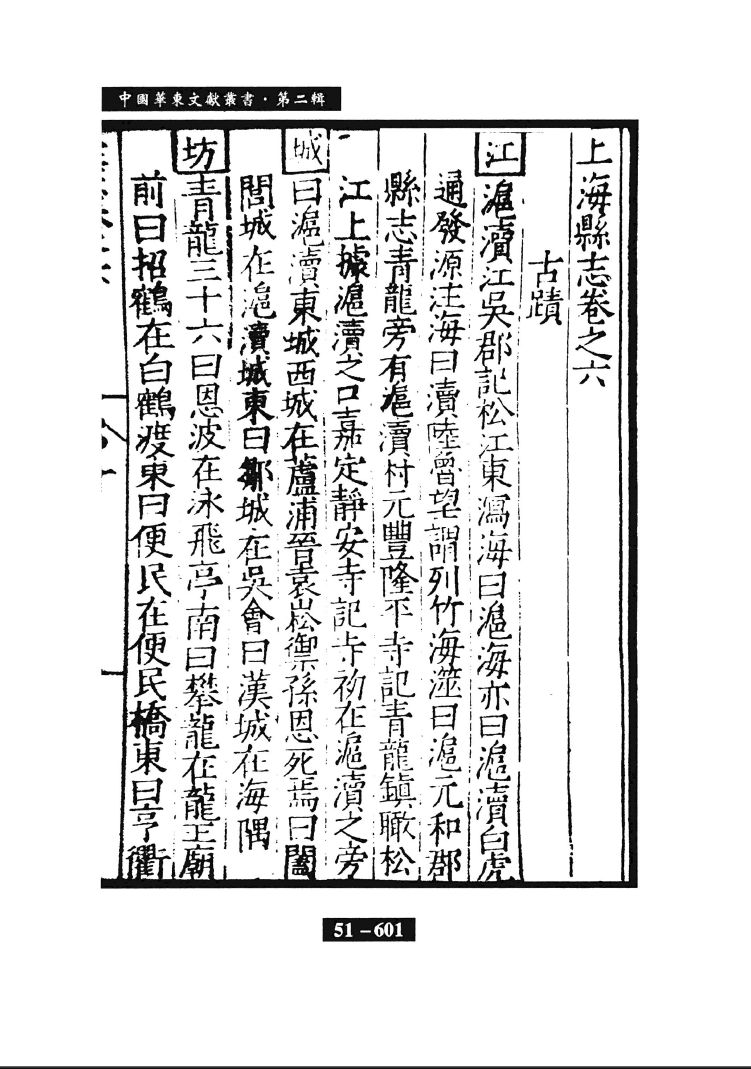 中國華東文獻叢書·第二輯
上海縣志卷之六
古蹟
江滬瀆江吳郡記松江東瀉海曰滬海亦曰滬瀆白虎
通發源注海曰瀆陸魯望謂列竹海澨曰滬元和郡
縣志青龍旁有滬瀆村元豐隆平寺記青龍鎮瞰松
江上據滬瀆之口嘉定靜安寺記寺初在滬瀆之旁
城曰滬瀆東城西城在蘆浦晉袁崧禦孫恩死焉曰闔
閭城在滬瀆城東曰鄒城在吳會曰漢城在海隅
坊青龍三十六曰恩波在泳飛亭南曰攀龍在龍王廟
前曰招鶴在白鶴渡東曰便民在便民橋東曰亨衢
51-601